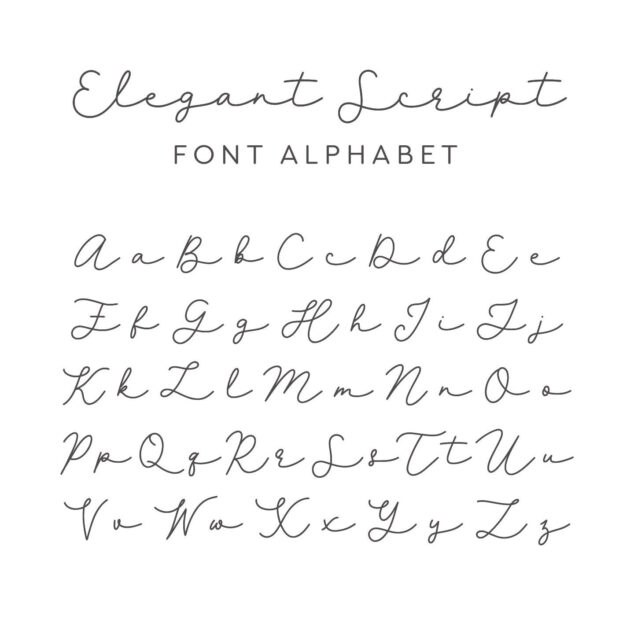 Elegant Script
FONT ALPHABET
A a B b C c D d E e
F f G g H h I i J j
K k L l M m N n O o
P p Q q R r S s T t U u
V v W w X x Y y Z z